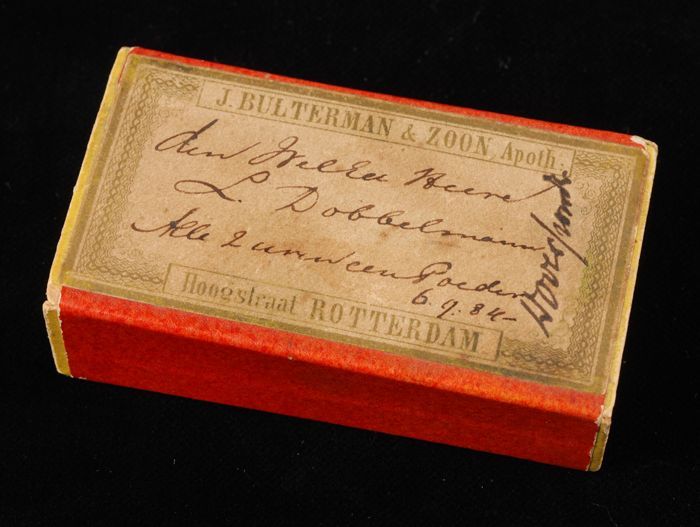 J. BULTERMAN & ZOON, Apoth.
den WelEd Heere
L. Dobbelmann
Alle 2 uren een Poeder
6.9.84-
Hoogstraat ROTTERDAM